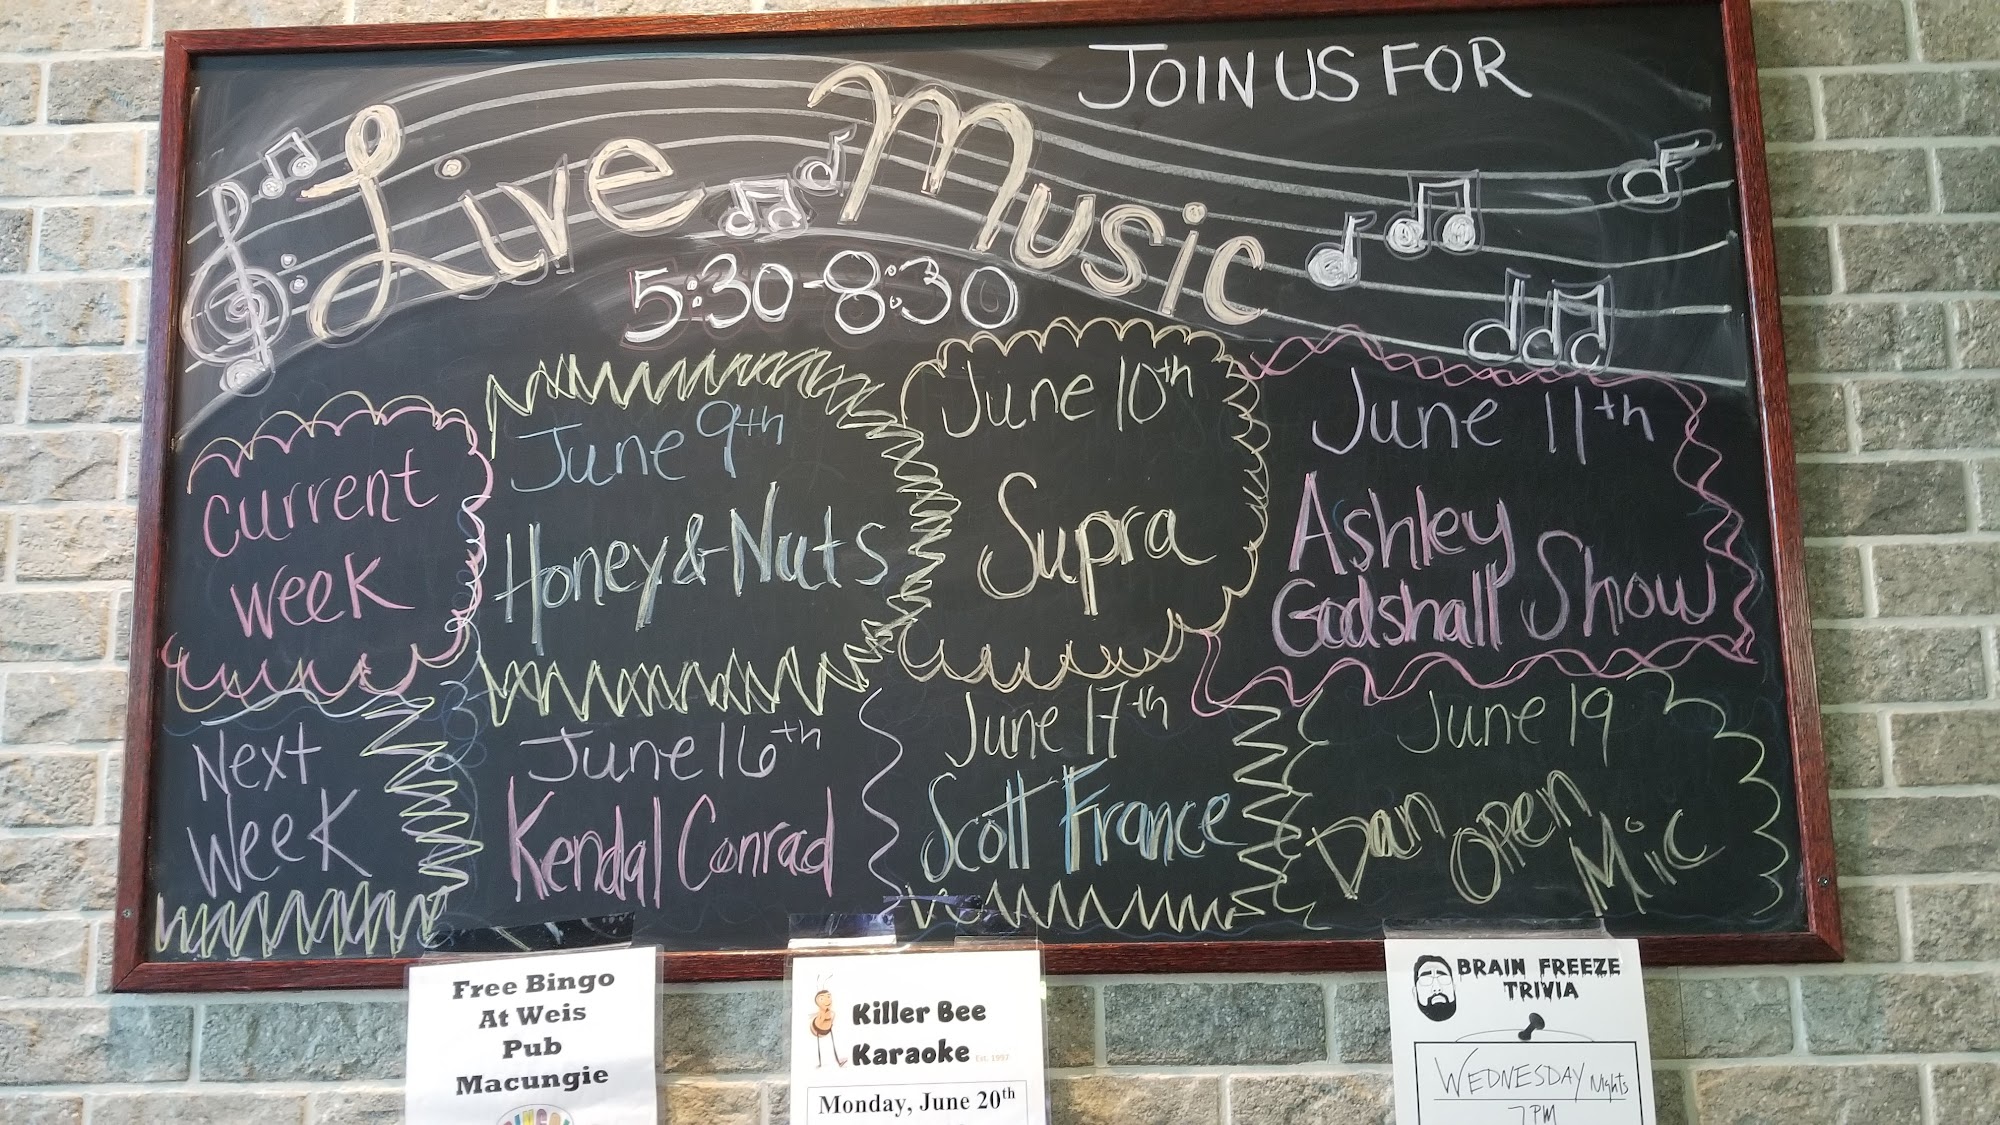 JOIN US FOR
Live Music
5:30-8:30
Current
Week
June 9th
Honey & Nuts
June 10th
Supra
June 11th
Ashley
Godshall Show
Next
Week
June 16th
Kendal Conrad
June 17th
Scott France
June 19
Dan OPEN Mic
Free Bingo
At Weis
Pub
Macungie
Killer Bee
Karaoke Est. 1997
Monday, June 20th
BRAIN FREEZE
TRIVIA
WEDNESDAY Nights
7 PM